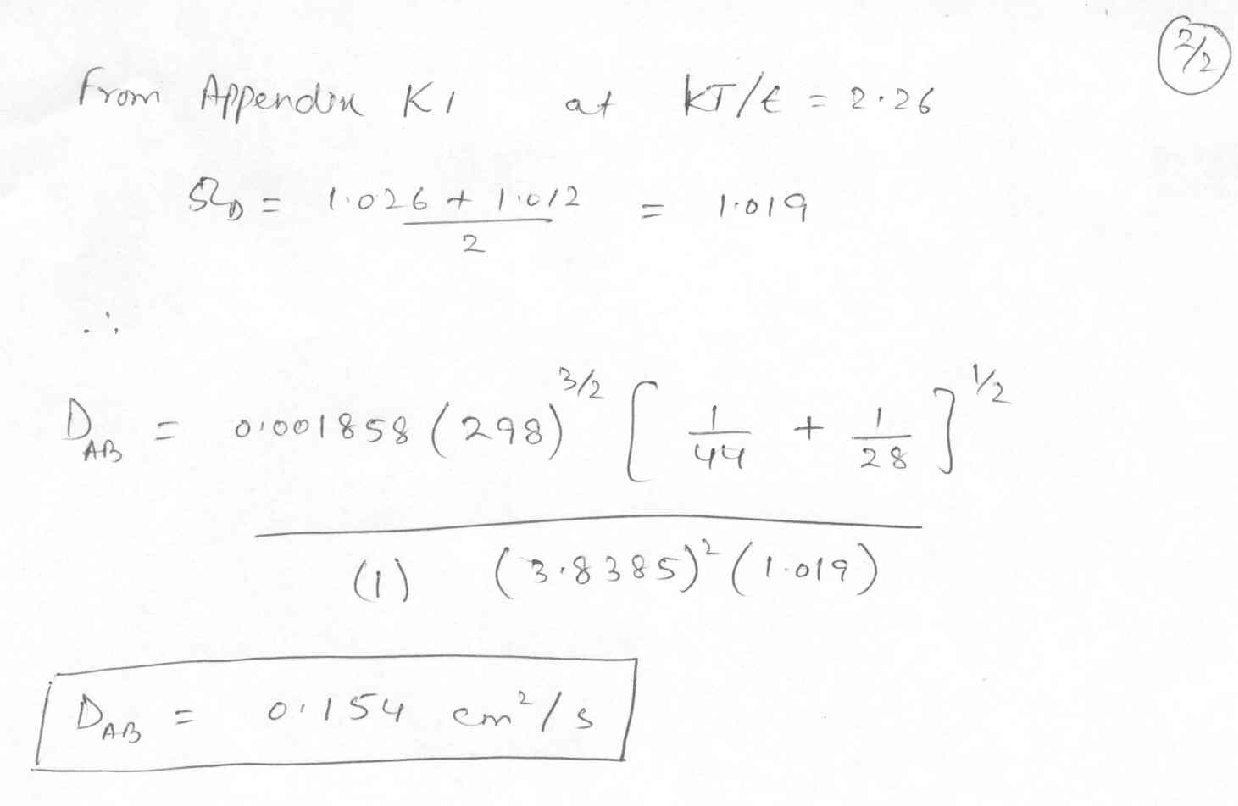 2/2
From Appendix K1 at kT/ε = 2.26
Ω_D = (1.026 + 1.012) / 2 = 1.019
∴
D_AB = 0.001858 (298)^3/2 [ 1/44 + 1/28 ]^1/2
(1) (3.8385)^2 (1.019)
D_AB = 0.154 cm^2/s